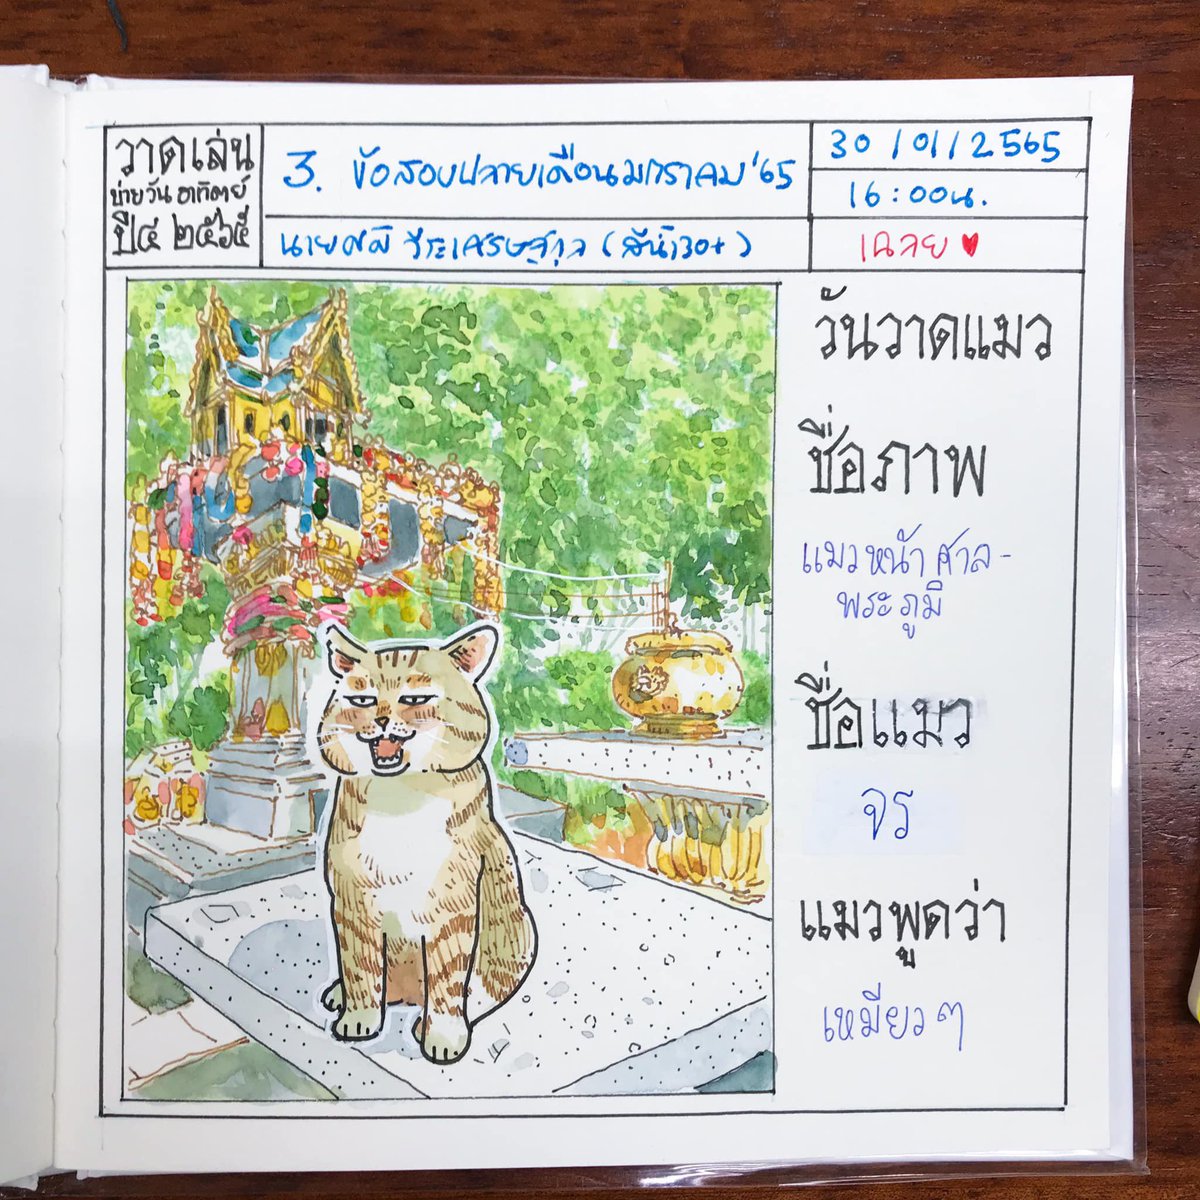 วาดเล่น
บ่ายวันอาทิตย์
ปี๔ ๒๕๖๕
3. ข้อสอบปลายเดือนมกราคม'65
นาย วีระเศรษฐกุล (สีน้ำ30+)
30/01/2565
16:00น.
เฉลย ♥
วันวาดแมว
ชื่อภาพ
แมวหน้าศาล-
พระภูมิ
ชื่อแมว
จร
แมวพูดว่า
เหมียวๆ